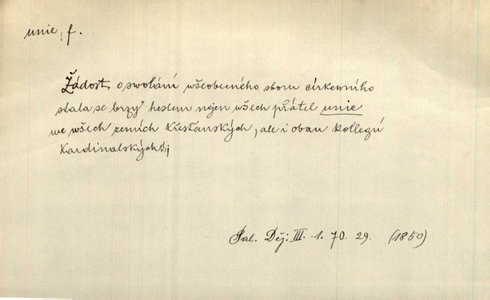 unie, f.
Žádost o swolání wšeobecného sboru církewního
stala se brzy heslem nejen wšech přátel unie
we wšech zemích křesťanských, ale i obau kollegií
kardinalských.
Pal. Děj. III. 1. 70. 29. (1850)